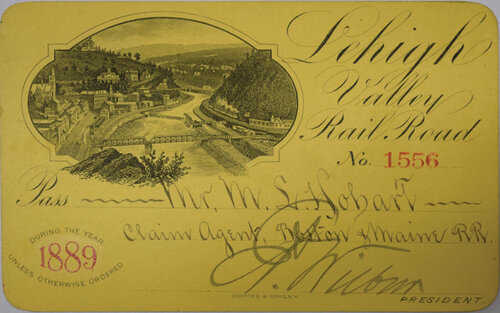 Lehigh
Valley
Rail Road
No. 1556
Pass Mr. M. L. Hobart
Claim Agent, Boston & Maine RR.
DURING THE YEAR
1889
UNLESS OTHERWISE ORDERED
PRESIDENT
HOSFORD & SONS, N.Y.